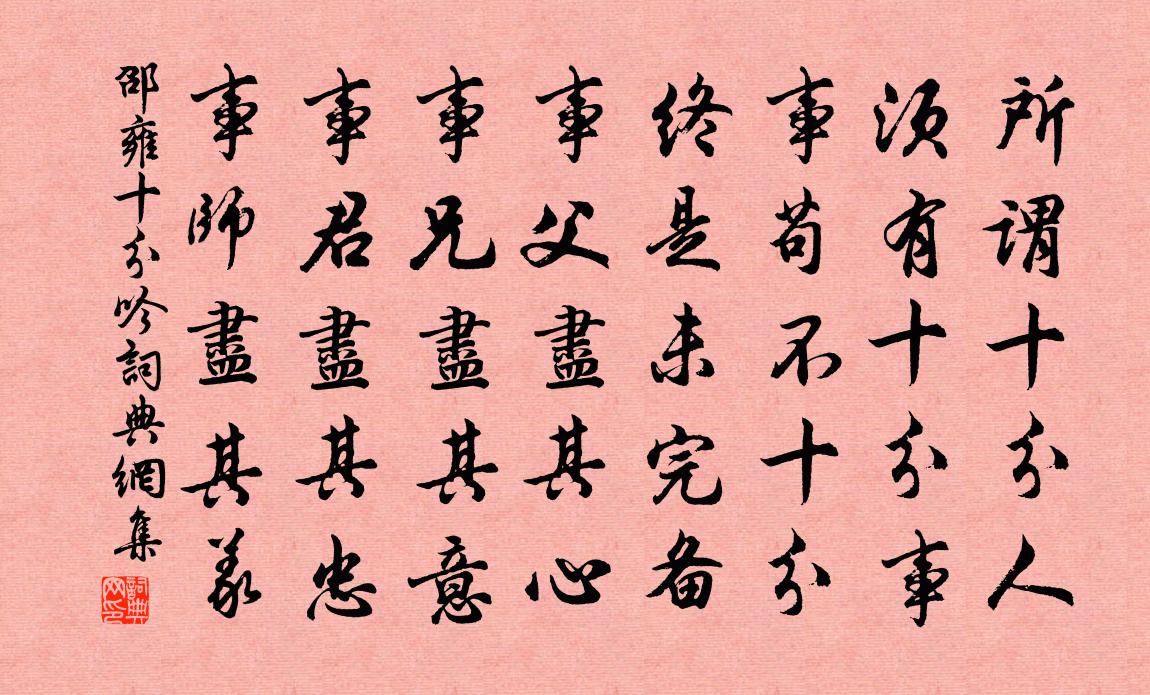 所謂十分人
須有十分事
事苟不十分
終是未完备
事父盡其心
事兄盡其意
事君盡其忠
事師盡其義
邵雍十分吟詞典網集
詞典网印